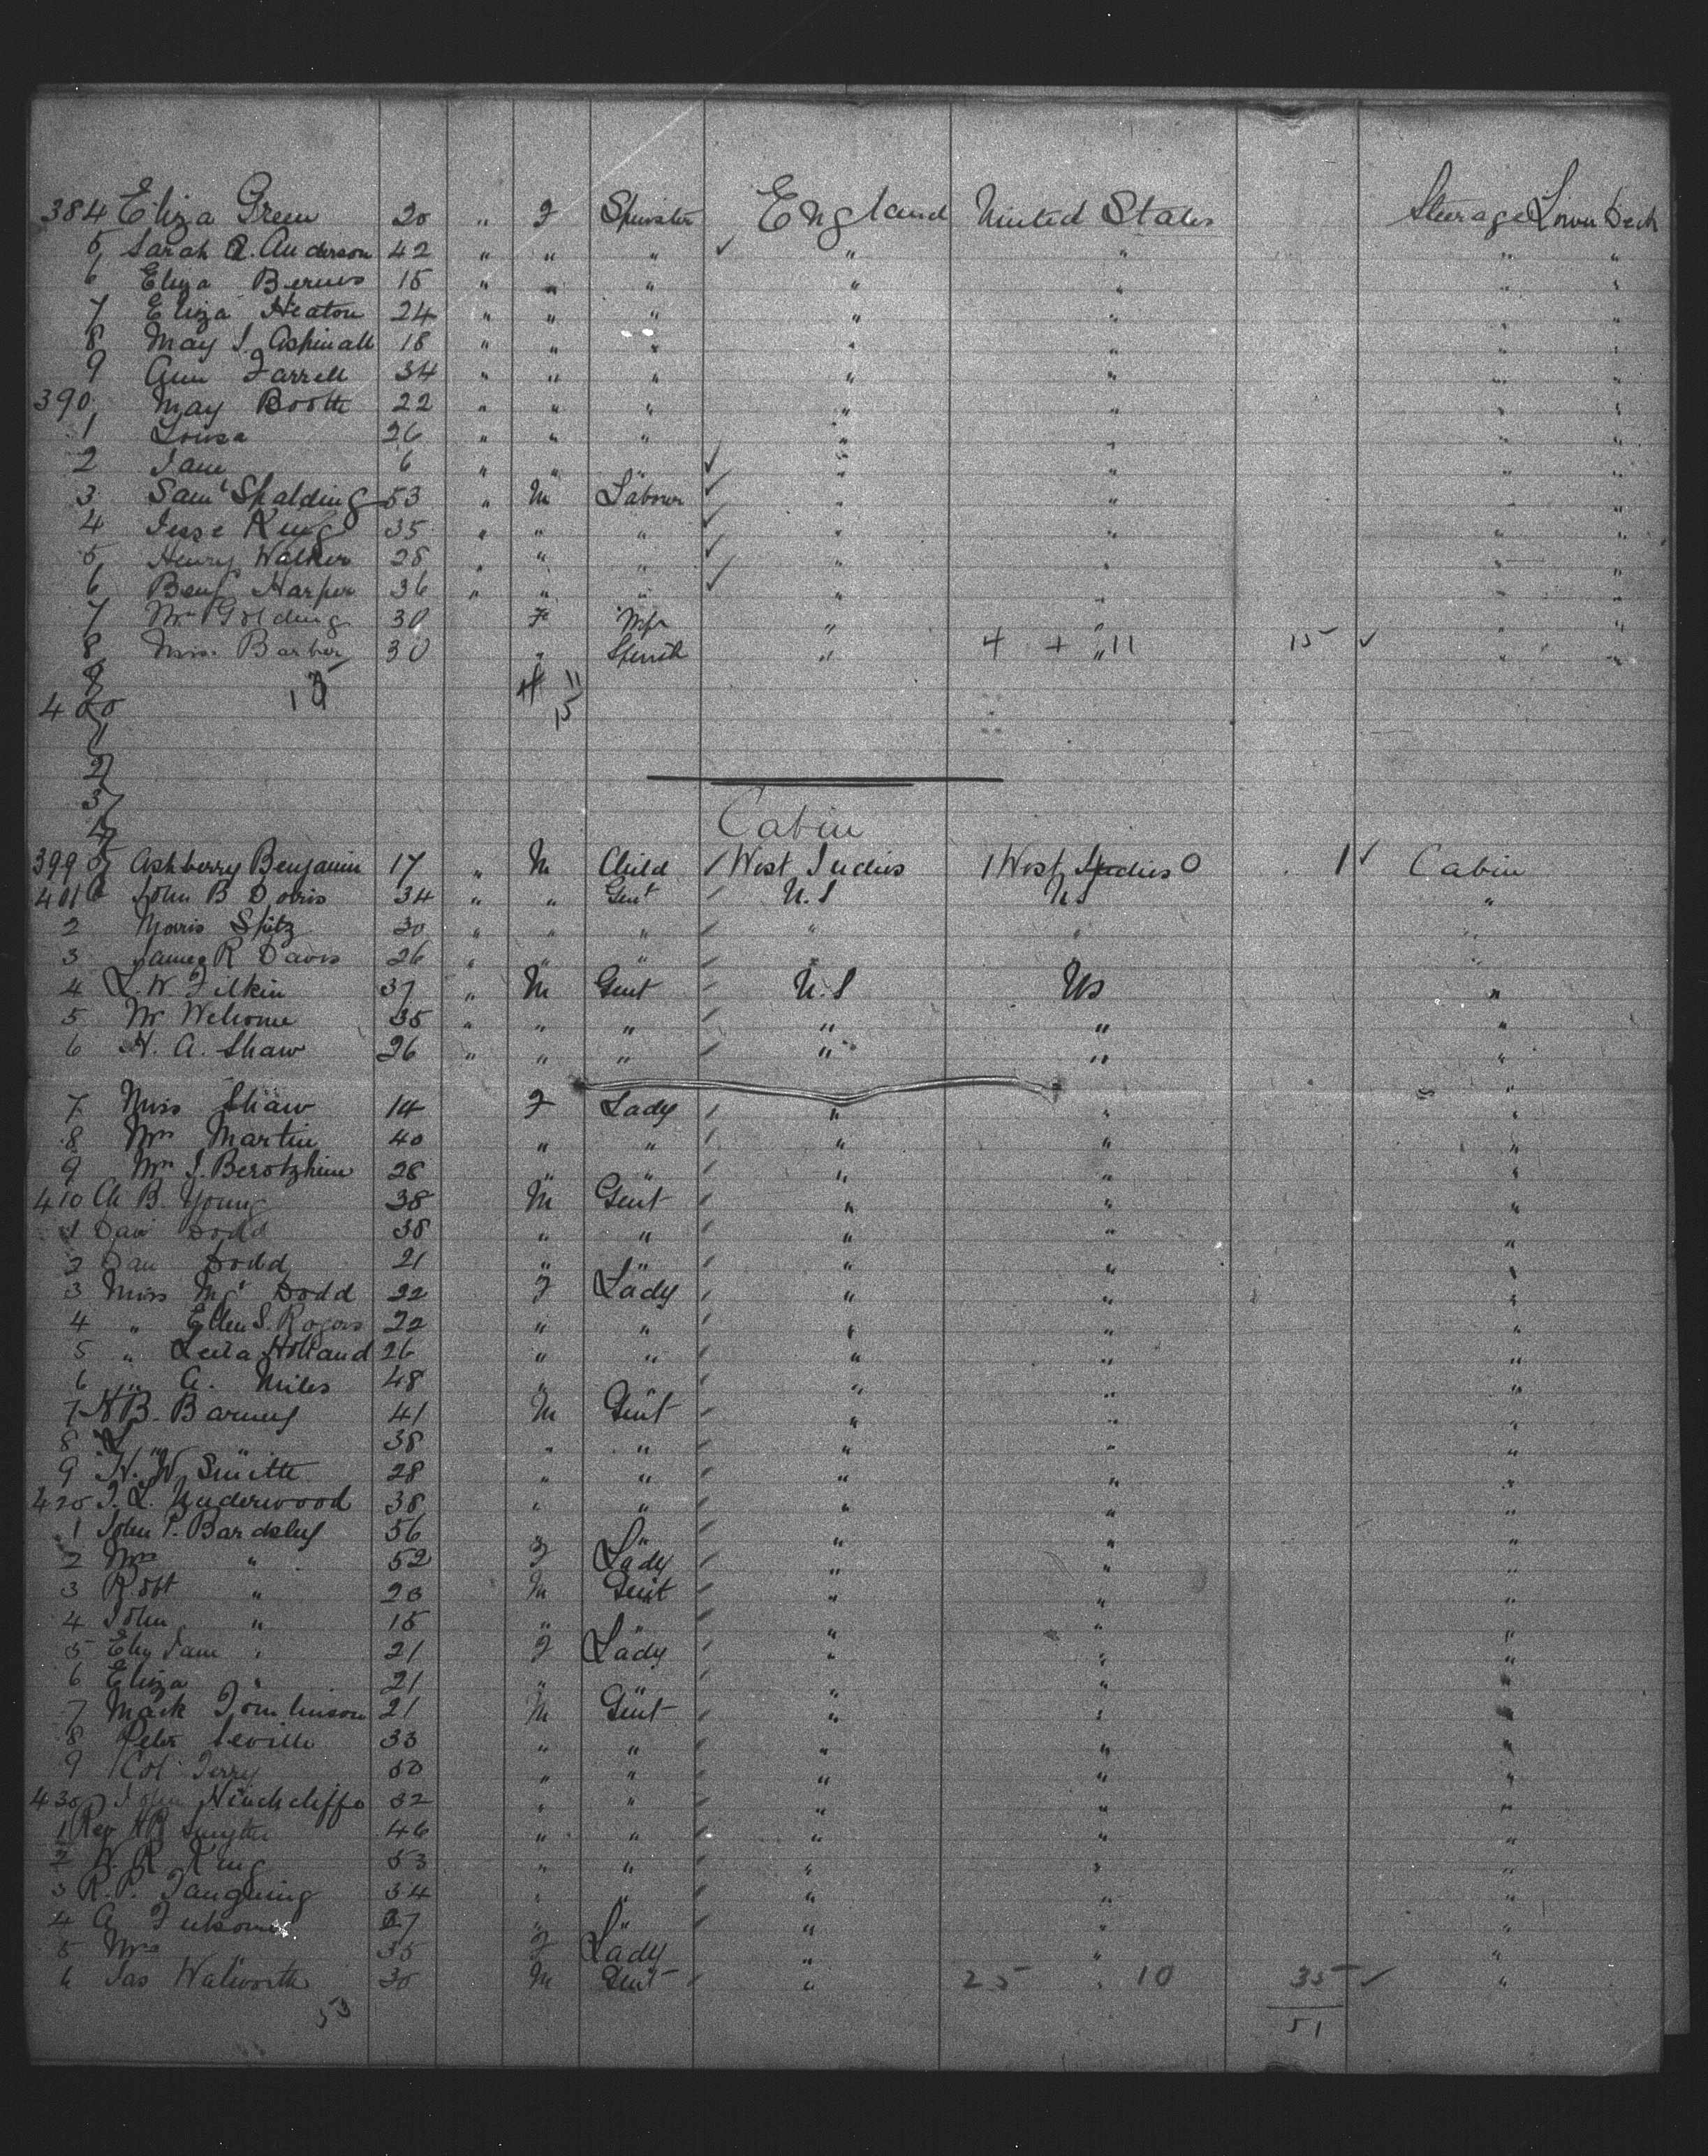 384 Eliza Green 20 " F Spinster England United States Steerage Lower Deck
5 Sarah A. Anderson 42 " " " ✓ " " " "
6 Eliza 15 " " " " " " "
7 Eliza Heaton 24 " " " " " " "
8 May J. Aspinall 18 " " " " " " "
9 Ann Farrell 34 " " " " " " "
390 May Booth 22 " " " " " " "
1 Louisa 26 " " " " " " "
2 Jane 6 " " " ✓ " " " "
3 Saml Spalding 53 " M Labourer ✓ " " " "
4 Jesse King 35 " " " ✓ " " " "
5 Henry Walker 28 " " " ✓ " " " "
6 Benj Harper 36 " " " ✓ " " " "
7 Mrs Golding 30 F Wife " " " "
8 Miss Barber 30 " Spinst " 4 + " 11 15 ✓ " "
9 15 4 11
400 15
1
2
3
4
Cabin
399 5 Ashberry Benjamin 17 " M Child / West Indies 1 West Indies 0 1 ✓ Cabin
401 6 John B Dorris 34 " " Gent U.S US "
2 Morris Spitz 30 " " " / " " "
3 James R Davis 26 " " " / " " "
4 L. W. Filkin 37 " M Gent / U.S US "
5 Mr Welcome 35 " " " / " " "
6 H. A. Shaw 26 " " " / " " "
7 Miss Shaw 14 F Lady / " " "
8 Mrs Martin 40 " " / " " "
9 Mrs J. Berotzheim 28 " " / " " "
410 Ch B. Young 38 M Gent / " " "
1 Dav Dodd 38 " " / " " "
2 Dan Dodd 21 " " / " " "
3 Miss Mgt Dodd 22 F Lady / " " "
4 " Ellen S. Rogers 22 " " / " " "
5 " Leila Holland 26 " " / " " "
6 " A. Miles 48 " " / " " "
7 H B. Barnes 41 M Gent / " " "
8 L " 38 " " / " " "
9 H. W Smith 28 " " / " " "
420 J. L. Underwood 38 " " / " " "
1 John P. Bardsley 56 " " / " " "
2 Mrs " 52 F Lady / " " "
3 Robt " 23 M Gent / " " "
4 John " 15 " " / " " "
5 Eliz Jane " 21 F Lady / " " "
6 Eliza " 21 " " / " " "
7 Mark Tomlinson 21 M Gent / " " "
8 Peter Seville 33 " " / " " "
9 Col Terry 50 " " / " " "
430 John Hinchcliffe 32 " " / " " "
1 Rev HB Smythe 46 " " / " " "
2 W. R King 53 " " / " " "
3 R. P. 34 " " / " " "
4 A 27 " " / " " "
5 Mrs 35 F Lady " " "
6 Jas Walworth 30 M Gent / " 25 " 10 35 ✓ "
53 51